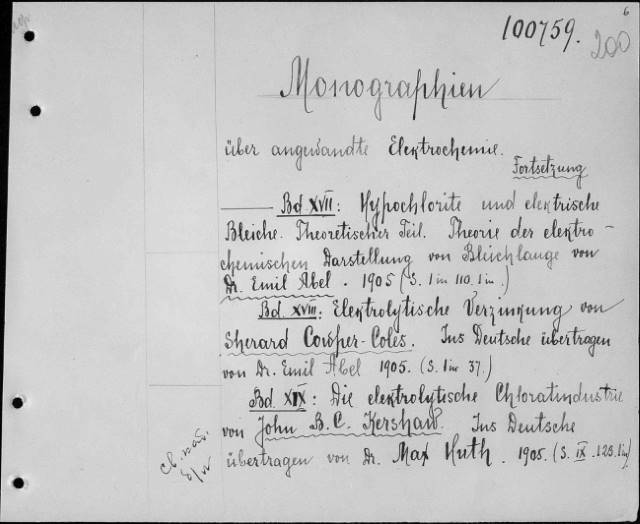 6
100759.
200
Monographien
über angewandte Elektrochemie.
Fortsetzung
Bd XVII: Hypochlorite und elektrische
Bleiche. Theoretischer Teil. Theorie der elektro-
chemischen Darstellung von Bleichlauge von
Dr. Emil Abel. 1905 (S. 1 in 110. 1 in.)
Bd. XVIII: Elektrolytische Verzinkung von
Sherard Cowper-Coles. Ins Deutsche übertragen
von Dr. Emil Abel 1905. (S. 1 in 37.)
Bd. XIX: Die elektrolytische Chloratindustrie
von John B. C. Kershaw. Ins Deutsche
übertragen von Dr. Max Huth. 1905. (S. IX. 123. 1 in)